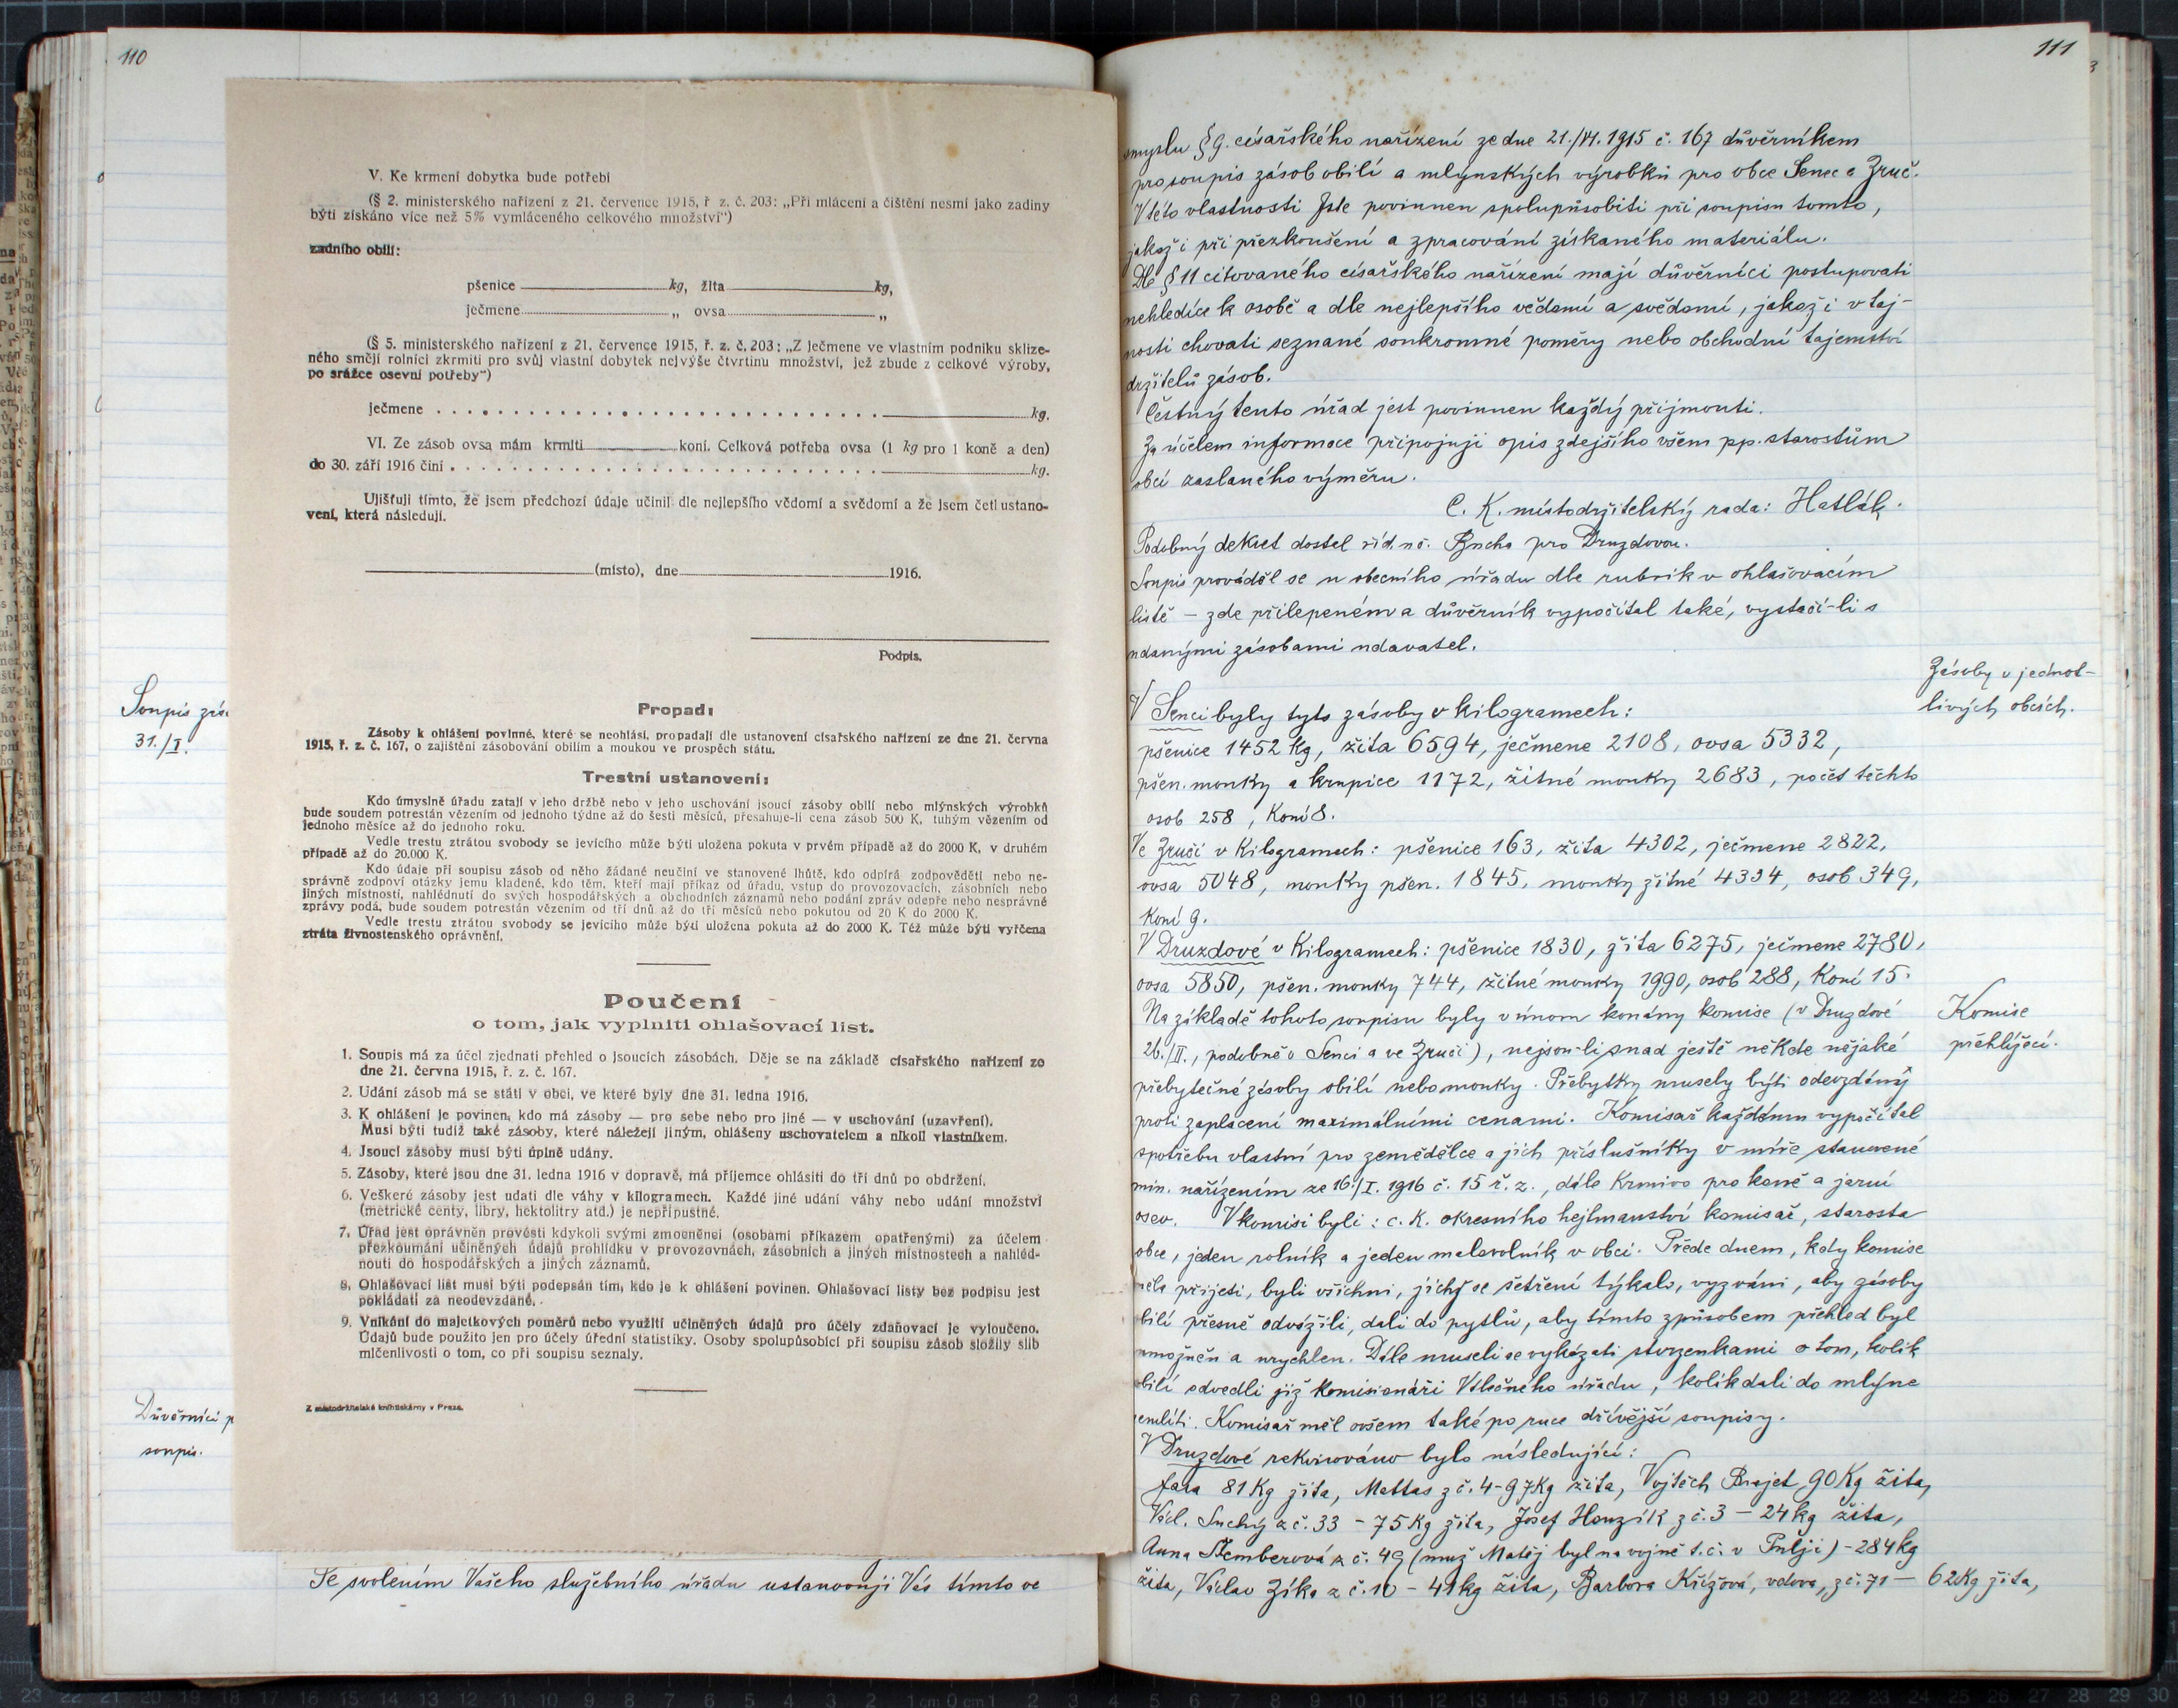 110
V. Ke krmení dobytka bude potřebí
(§ 2. ministerského nařízení z 21. července 1915, ř z. č. 203: „Při mlácení a čištění nesmí jako zadiny
býti získáno více než 5% vymláceného celkového množství“)
zadního obilí:
pšenice kg, žita kg,
ječmene „ ovsa „
(§ 5. ministerského nařízení z 21. července 1915, ř. z. č. 203: „Z ječmene ve vlastním podniku sklize-
ného smějí rolníci zkrmiti pro svůj vlastní dobytek nejvýše čtvrtinu množství, jež zbude z celkové výroby,
po srážce osevní potřeby“)
ječmene . . . . . . . . . . . . . . . . . . . . . . . . . . . . . kg.
VI. Ze zásob ovsa mám krmiti koní. Celková potřeba ovsa (1 kg pro 1 koně a den)
do 30. září 1916 činí . . . . . . . . . . . . . . . . . . . . . . . . . . . . kg.
Ujišťuji tímto, že jsem předchozí údaje učinil dle nejlepšího vědomí a svědomí a že jsem četl ustano-
vení, která následují.
(místo), dne 1916.
Podpis.
Soupis zás
31./I.
Propad:
Zásoby k ohlášení povinné, které se neohlásí, propadají dle ustanovení císařského nařízení ze dne 21. června
1915, ř. z. č. 167, o zajištění zásobování obilím a moukou ve prospěch státu.
Trestní ustanovení:
Kdo úmyslně úřadu zatají v jeho držbě nebo v jeho uschování jsoucí zásoby obilí nebo mlýnských výrobků
bude soudem potrestán vězením od jednoho týdne až do šesti měsíců, přesahuje-li cena zásob 500 K, tuhým vězením od
jednoho měsíce až do jednoho roku.
Vedle trestu ztrátou svobody se jevícího může býti uložena pokuta v prvém případě až do 2000 K, v druhém
případě až do 20.000 K.
Kdo údaje při soupisu zásob od něho žádané neučiní ve stanovené lhůtě, kdo odpírá zodpověděti nebo ne-
správně zodpoví otázky jemu kladené, kdo těm, kteří mají příkaz od úřadu, vstup do provozovacích, zásobních nebo
jiných místností, nahlédnutí do svých hospodářských a obchodních záznamů nebo podání zpráv odepře nebo nesprávné
zprávy podá, bude soudem potrestán vězením od tří dnů až do tří měsíců nebo pokutou od 20 K do 2000 K.
Vedle trestu ztrátou svobody se jevícího může býti uložena pokuta až do 2000 K. Též může býti vyřčena
ztráta živnostenského oprávnění.
Poučení
o tom, jak vyplniti ohlašovací list.
1. Soupis má za účel zjednati přehled o jsoucích zásobách. Děje se na základě císařského nařízení ze
dne 21. června 1915, ř. z. č. 167.
2. Udání zásob má se státi v obci, ve které byly dne 31. ledna 1916.
3. K ohlášení je povinen, kdo má zásoby — pro sebe nebo pro jiné — v uschování (uzavření).
Musí býti tudíž také zásoby, které náležejí jiným, ohlášeny uschovatelem a nikoli vlastníkem.
4. Jsoucí zásoby musí býti úplně udány.
5. Zásoby, které jsou dne 31. ledna 1916 v dopravě, má příjemce ohlásiti do tří dnů po obdržení.
6. Veškeré zásoby jest udati dle váhy v kilogramech. Každé jiné udání váhy nebo udání množství
(metrické centy, libry, hektolitry atd.) je nepřípustné.
7. Úřad jest oprávněn provésti kdykoli svými zmocněnci (osobami příkazem opatřenými) za účelem
přezkoumání učiněných údajů prohlídku v provozovnách, zásobních a jiných místnostech a nahléd-
nouti do hospodářských a jiných záznamů.
8. Ohlašovací list musí býti podepsán tím, kdo je k ohlášení povinen. Ohlašovací listy bez podpisu jest
pokládati za neodevzdané.
9. Vnikání do majetkových poměrů nebo využití učiněných údajů pro účely zdaňovací je vyloučeno.
Údajů bude použito jen pro účely úřední statistiky. Osoby spolupůsobící při soupisu zásob složily slib
mlčenlivosti o tom, co při soupisu seznaly.
Z místodržitelské knihtiskárny v Praze.
Důvěrníci p
soupis.
Se svolením Vašeho služebního úřadu ustanovuji Vás tímto ve
111
smyslu § 9. císařského nařízení ze dne 21./VI. 1915 č. 167 důvěrníkem
pro soupis zásob obilí a mlýnských výrobků pro obce Senec a Zruč.
V této vlastnosti jste povinnen spolupůsobiti při soupisu tomto,
jakož i při přezkoušení a zpracování získaného materiálu.
Dle § 11 citovaného císařského nařízení mají důvěrníci postupovati
nehledíce k osobě a dle nejlepšího vědomí a svědomí, jakož i v taj-
nosti chovati seznané soukromné poměry nebo obchodní tajemství
držitelů zásob.
Čestný tento úřad jest povinnen každý přijmouti.
Za účelem informace připojuji opis zdejšího všem pp. starostům
obcí zaslaného výměru.
C. K. místodržitelský rada: Hatlák.
Podobný dekret dostal říd. uč. Bucha pro Druzdovou.
Soupis prováděl se u obecního úřadu dle rubrik v ohlašovacím
listě – zde přilepeném a důvěrník vypočítal také, vystačí-li s
udanými zásobami udavatel.
Zásoby v jednot-
livých obcích.
V Senci byly tyto zásoby v kilogramech:
pšenice 1452 kg, žita 6594, ječmene 2108, ovsa 5332,
pšen. mouky a krupice 1172, žitné mouky 2683, počet těchto
osob 258, koní 8.
Ve Zruči v kilogramech: pšenice 163, žita 4302, ječmene 2822,
ovsa 5048, mouky pšen. 1845, mouky žitné 4334, osob 349,
koní 9.
V Druzdové v kilogramech: pšenice 1830, žita 6275, ječmene 2780,
ovsa 5850, pšen. mouky 744, žitné mouky 1990, osob 288, koní 15.
Komise
přehlížecí.
Na základě tohoto soupisu byly v únoru konány komise (v Druzdové
26./II., podobně v Senci a ve Zruči), nejsou-li snad ještě někde nějaké
přebytečné zásoby obilí nebo mouky. Přebytky musely býti odevzdány
proti zaplacení maximálními cenami. Komisař každému vypočítal
spotřebu vlastní pro zemědělce a jich příslušníky v míře stanovené
min. nařízením ze 16./I. 1916 č. 15 ř. z., dále krmivo pro koně a jarní
osev. V komisi byli: c. k. okresního hejtmanství komisař, starosta
obce, jeden rolník a jeden malorolník v obci. Přede dnem, kdy komise
měla přijeti, byli všichni, jichž se šetření týkalo, vyzváni, aby zásoby
obilí přesně odvážili, dali do pytlů, aby tímto způsobem přehled byl
umožněn a urychlen. Dále museli se vykázati stvrzenkami o tom, kolik
obilí odvedli již komisionáři Válečného úřadu, kolik dali do mlýna
semlíti. Komisař měl ovšem také po ruce dřívější soupisy.
V Druzdové rekvirováno bylo následující:
fara 81 Kg žita, Mattas z č. 4 - 97 Kg žita, Vojtěch Brajet 90 Kg žita,
Václ. Suchý z č. 33 – 75 Kg žita, Josef Houzík z č. 3 – 24 kg žita,
Anna Štemberová z č. 49 (muž Matěj byl na vojně t. č. v Pulji) – 284 kg
žita, Václav Zíka z č. 10 – 41 kg žita, Barbora Křížová, vdova, z č. 71 – 62 Kg žita,